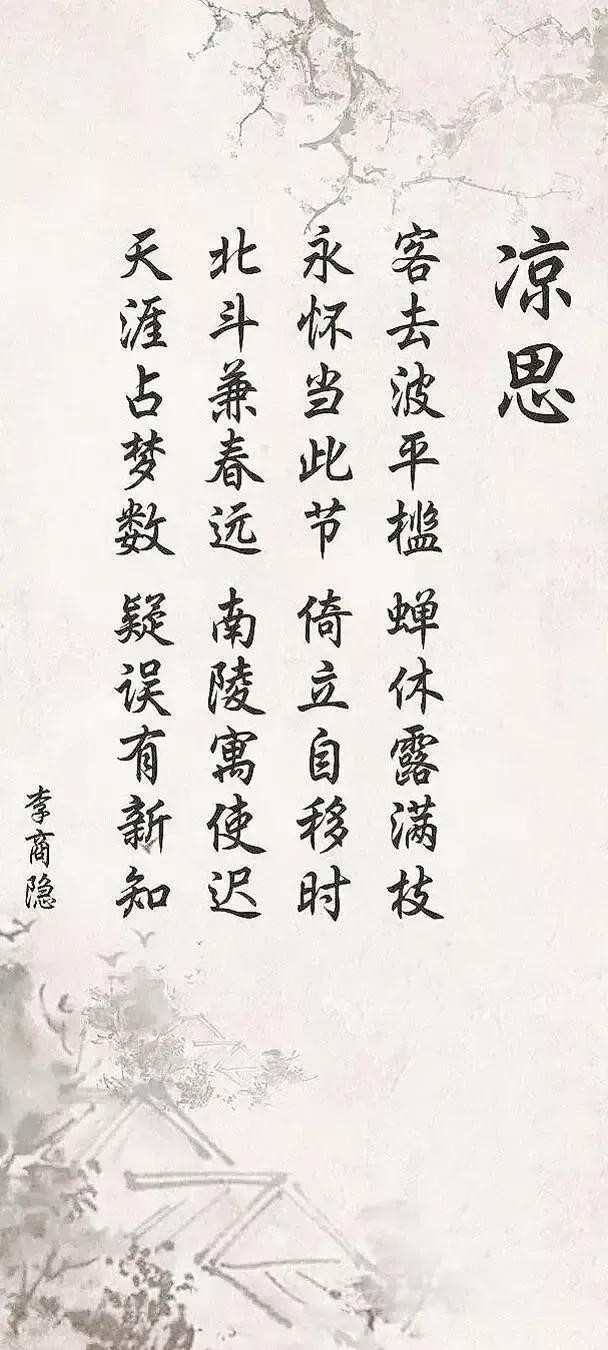 凉思
客去波平槛 蝉休露满枝
永怀当此节 倚立自移时
北斗兼春远 南陵寓使迟
天涯占梦数 疑误有新知
李商隐